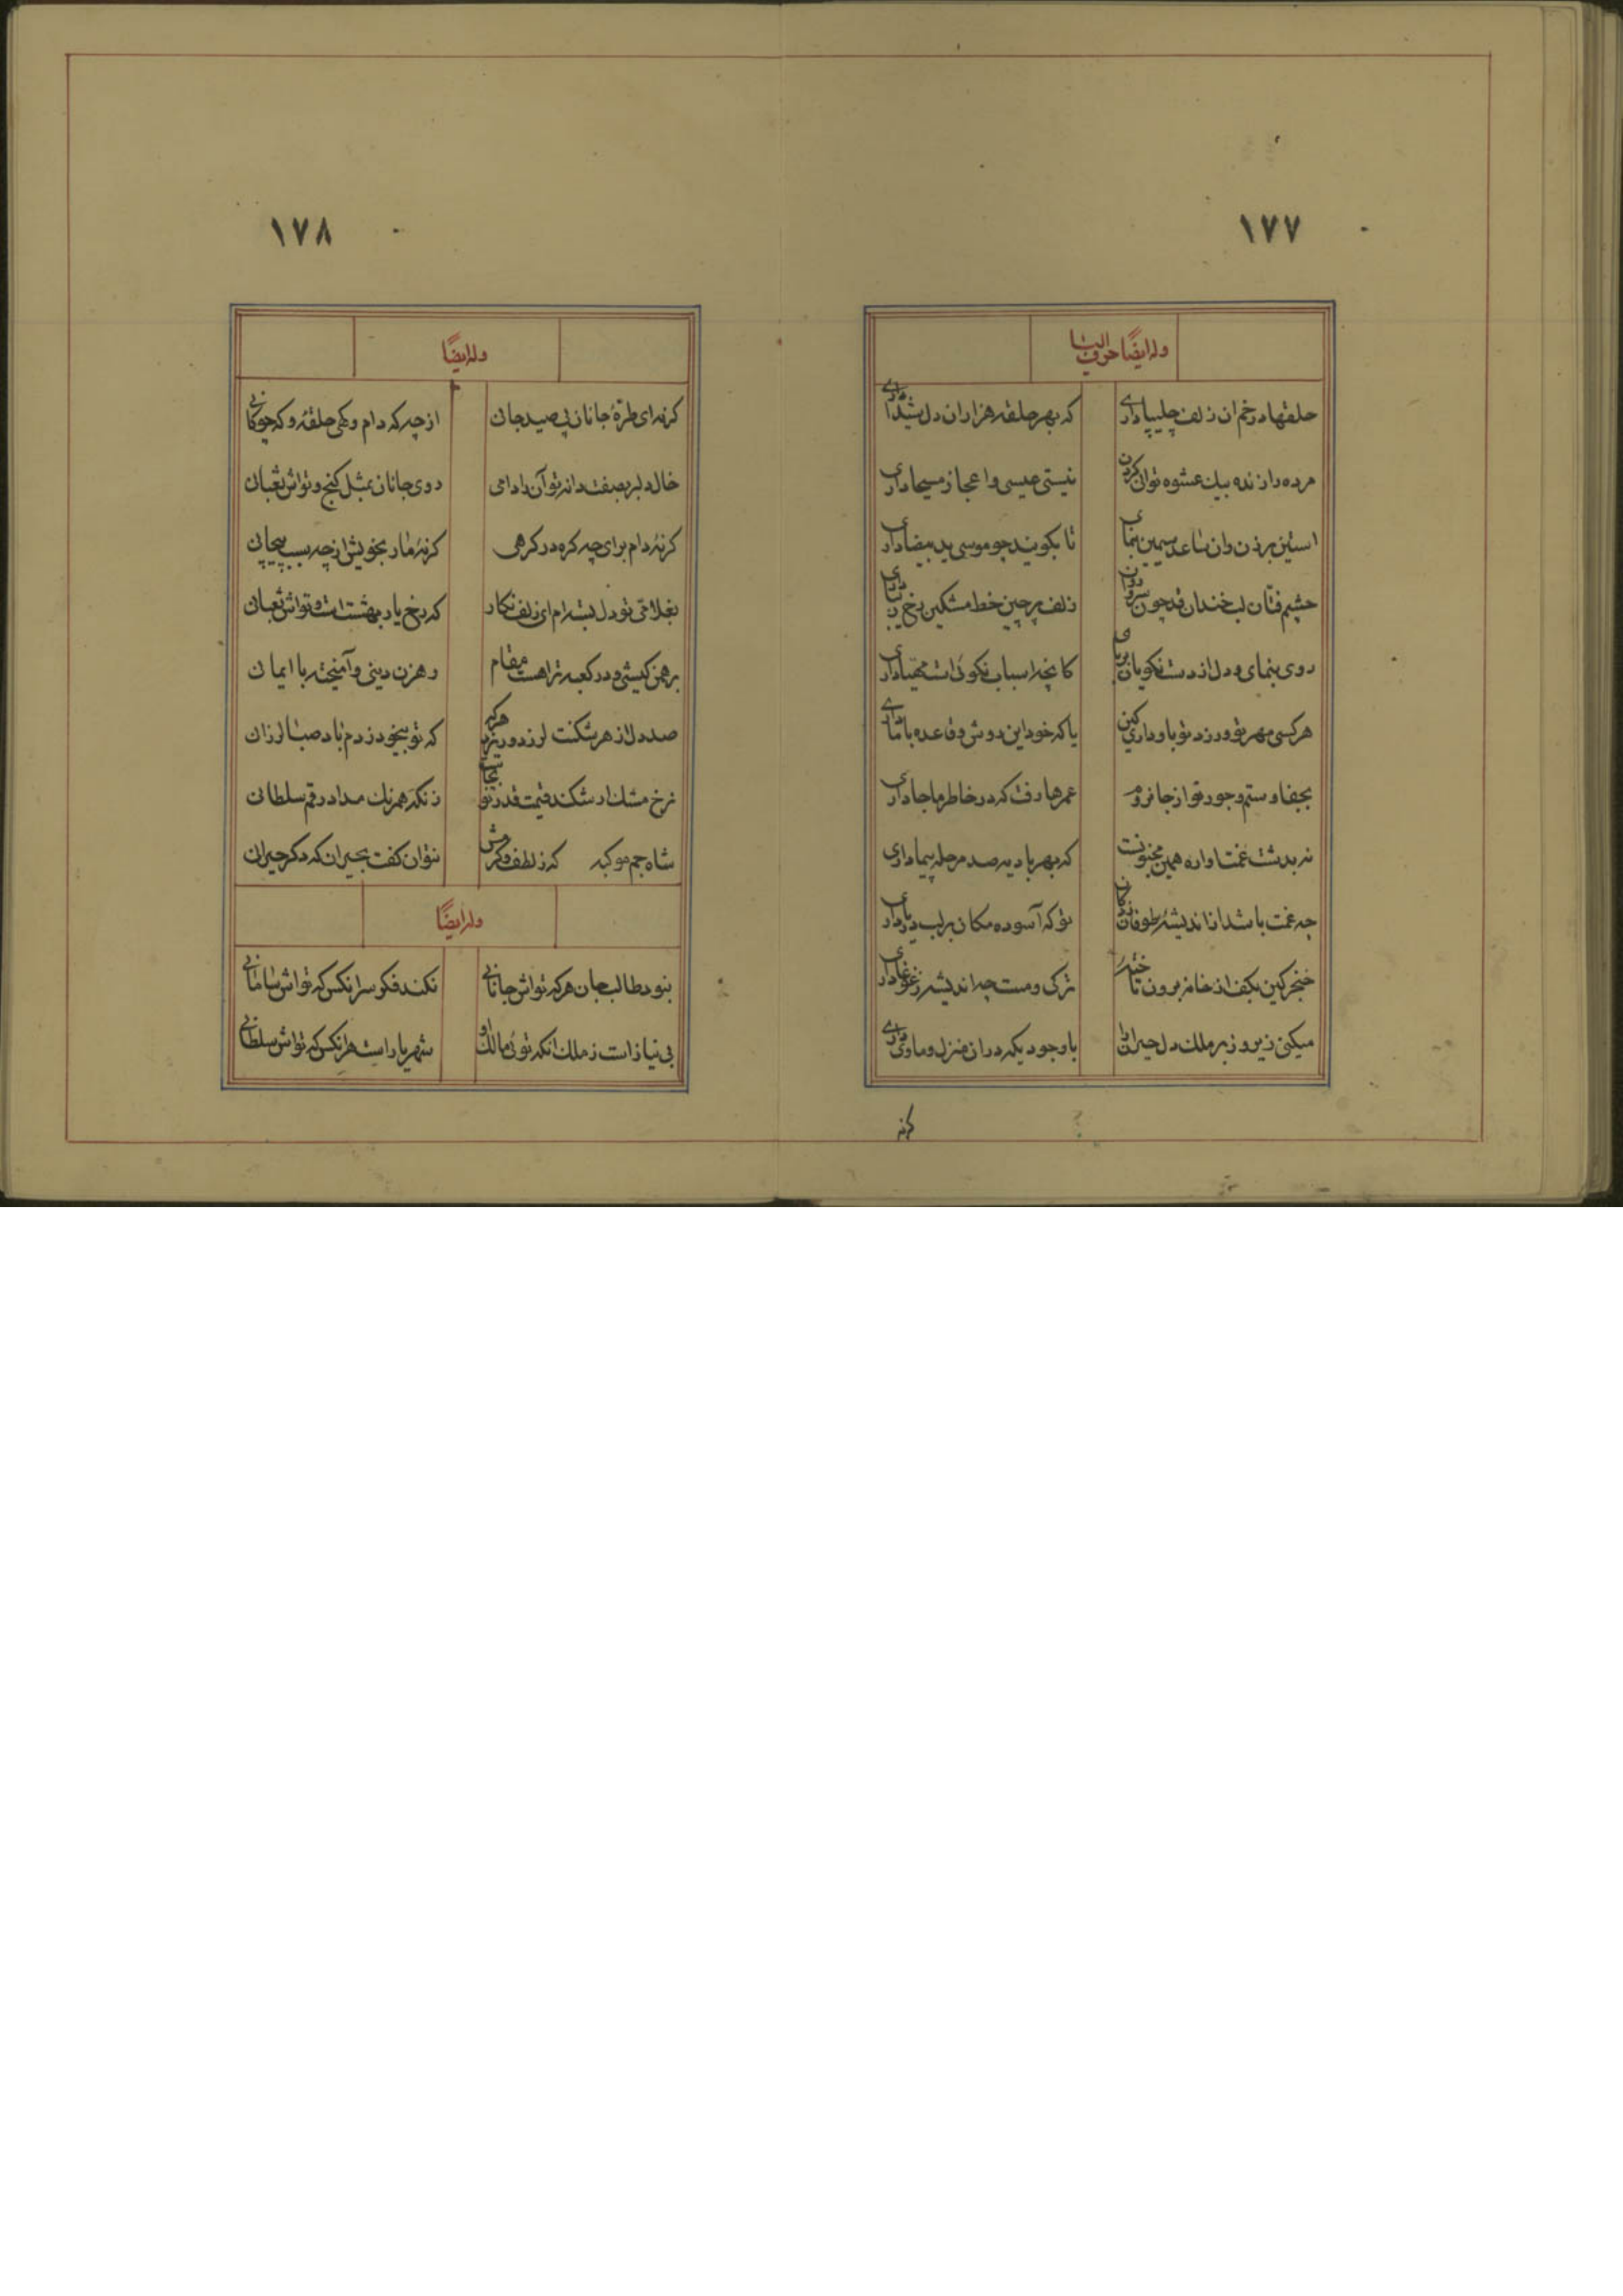 ١٧٧
وله ایضًا حرف الیا
حلقها در خم ان زلف چلیپا داری
که بهر حلقه هزاران دل شیدا داری
مرده را زنده بیك عشوه توان کردن
نیستی عیسی و اعجاز مسیحا داری
استین برزن وان ساعد سیمین بنمای
تا بکویند چو موسی ید بیضا داری
چشم فتان لب خندان قد چون سرو روان
زلف پرچین خط مشکین رخ زیبا داری
روی بنمای و دل از دست نکویان بربای
کانچه اسباب نکوئی است مهیا داری
هر کسی مهر تو ورزد تو باو داری کین
یا که خود این روش و قاعده با ما داری
بجفا و ستم و جور تو از جا نروم
عمرها رفت که در خاطر ما جا داری
نه بدشت غمت اواره همین مجنونست
که بهر بادیه صد مرحله پیما داری
چه غمت باشد از اندیشه طوفان زدکان
تو که آسوده مکان بر لب دریا داری
خنجر کین بکف از خانه برون تاخته
ترکی و مست چه اندیشه ز غوغا داری
میکنی زیر و زبر ملك دل حیران را
با وجودیکه در ان منزل و ماوی داری
کرنه
١٧٨
وله ایضًا
کرنه ای طرهٔ جانان پی صید جانی
از چه که دام و کهی حلقه و که چوکانی
خال دلبر بصفت دانه تو آن را دامی
روی جانان بمثل کنج و تواش ثعبانی
کرنهٔ دام برای چه کره در کرهی
کرنهٔ مار بخویش از چه سبب پیچانی
بغلامی تو دل بسته‌ام ای زلف نکار
که رخ یار بهشت است و تواش ثعبانی
برهمن کیشی و در کعبه ترا هست مقام
رهزن دینی و آمیخته با ایمانی
صد دل از هر شکنت لرزد و ریزد هرکه
که تو بیخود ز دم باد صبا لرزانی
نرخ مشك ار شکند قیمت قدر تو بجاست
زنکه همرنك مداد رقم سلطانی
شاه جم موکبه که ز لطف و کرمش
نتوان کفت بحیران که دکر حیرانی
وله ایضًا
بنود طالب جان هر که تواش جانانی
نکند فکر سر انکس که تواش سامانی
بی نیاز است ز ملك انکه توئی مالك او
شهریار است هر انکس که تواش سلطانی